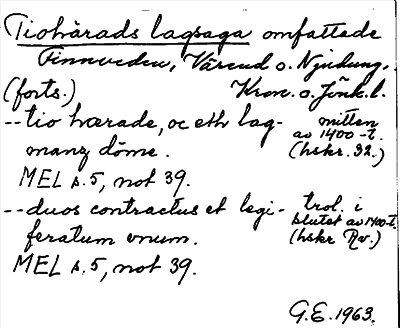 Tiohärads lagsaga omfattade
Finnveden, Värend o. Njudung.
(forts.) Kron. o. Jönk. l.
-- tio hærade, oc eth lag- mitten av 1400-t.
manz döme. (hskr. 32.)
MEL s. 5, not 39.
-- duos contractus et legi- trol. i slutet av 1400-t.
feratum unum. (hskr Rv.)
MEL s. 5, not 39.
G.E. 1963.